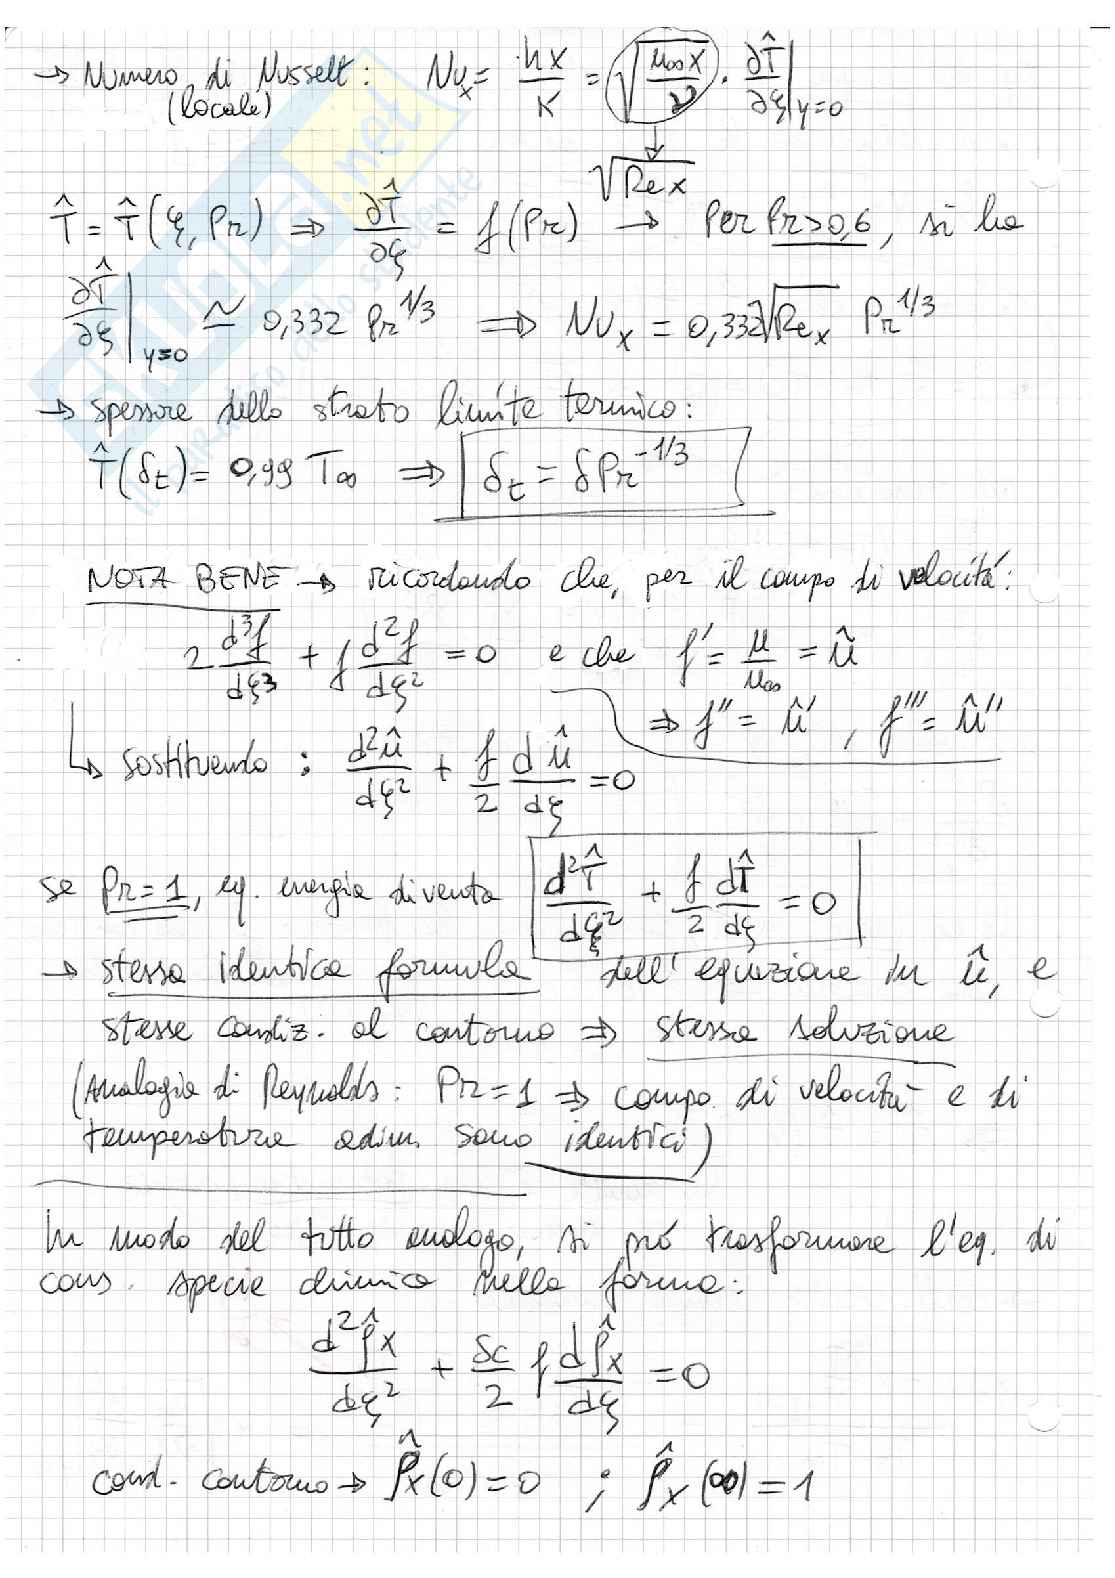 → Numero di Nusselt: Nu_x = hx/K = √(u∞x/ν) · ∂T̂/∂ξ|y=0
(locale)
√Re x
T̂ = T̂(ξ, Pr) ⇒ ∂T̂/∂ξ = f(Pr) → Per Pr>0,6, si ha
∂T̂/∂ξ|y=0 ≃ 0,332 Pr^1/3 ⇒ Nu_x = 0,332√Re_x Pr^1/3
→ spessore dello strato limite termico:
T̂(δt) = 0,99 T∞ ⇒ δt = δPr^-1/3
NOTA BENE → ricordando che, per il campo di velocitá:
2 d³f/dξ³ + f d²f/dξ² = 0 e che f' = u/u∞ = û
⇒ f'' = û' , f''' = û''
↳ sostituendo : d²û/dξ² + f/2 dû/dξ = 0
se Pr=1, eq. energia diventa d²T̂/dξ² + f/2 dT̂/dξ = 0
→ stessa identica formula dell'equazione in û, e
stesse condiz. al contorno ⇒ stessa soluzione
(Analogia di Reynolds: Pr=1 ⇒ campo di velocitá e di
temperatura adim. sono identici)
In modo del tutto analogo, si puó trasformare l'eq. di
cons. specie chimica nella forma:
d²ρ̂x/dξ² + Sc/2 f dρ̂x/dξ = 0
cond. contorno → ρ̂x(0) = 0 ; ρ̂x(∞) = 1